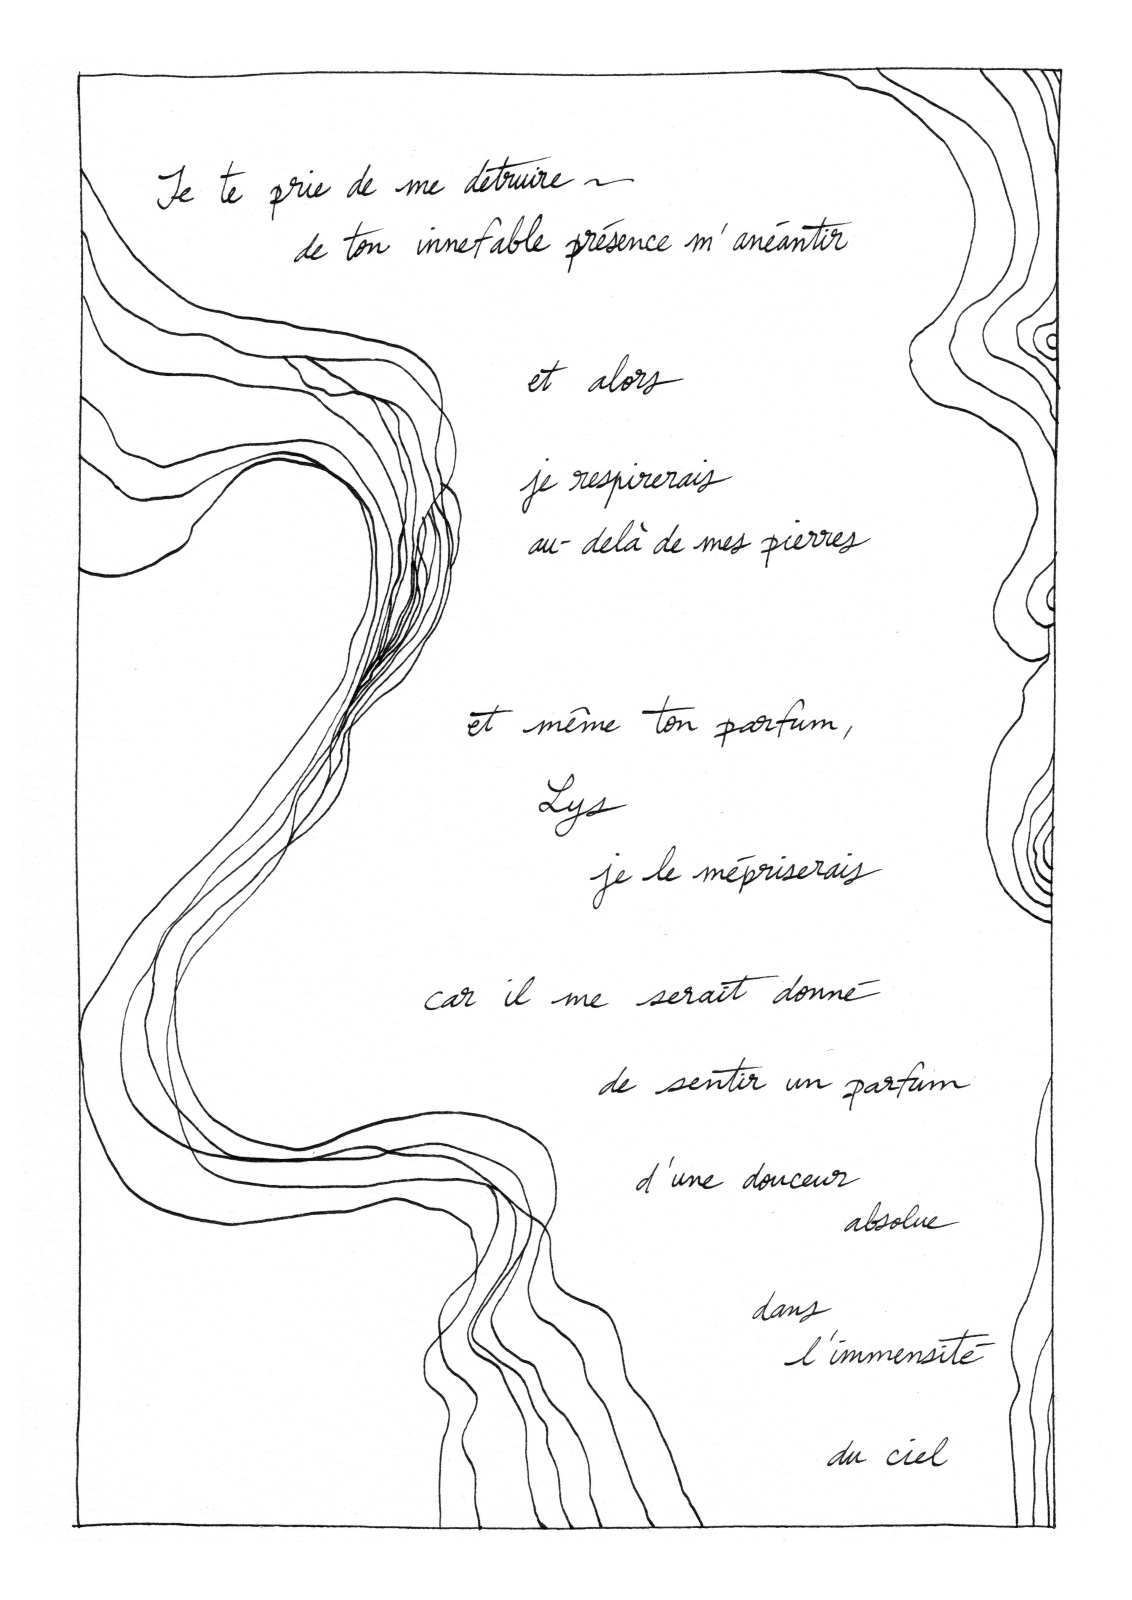 Je te prie de me détruire ~
de ton innefable présence m'anéantir
et alors
je respirerais
au-delà de mes pierres
et même ton parfum,
Lys
je le mépriserais
car il me serait donné
de sentir un parfum
d'une douceur
absolue
dans
l'immensité
du ciel